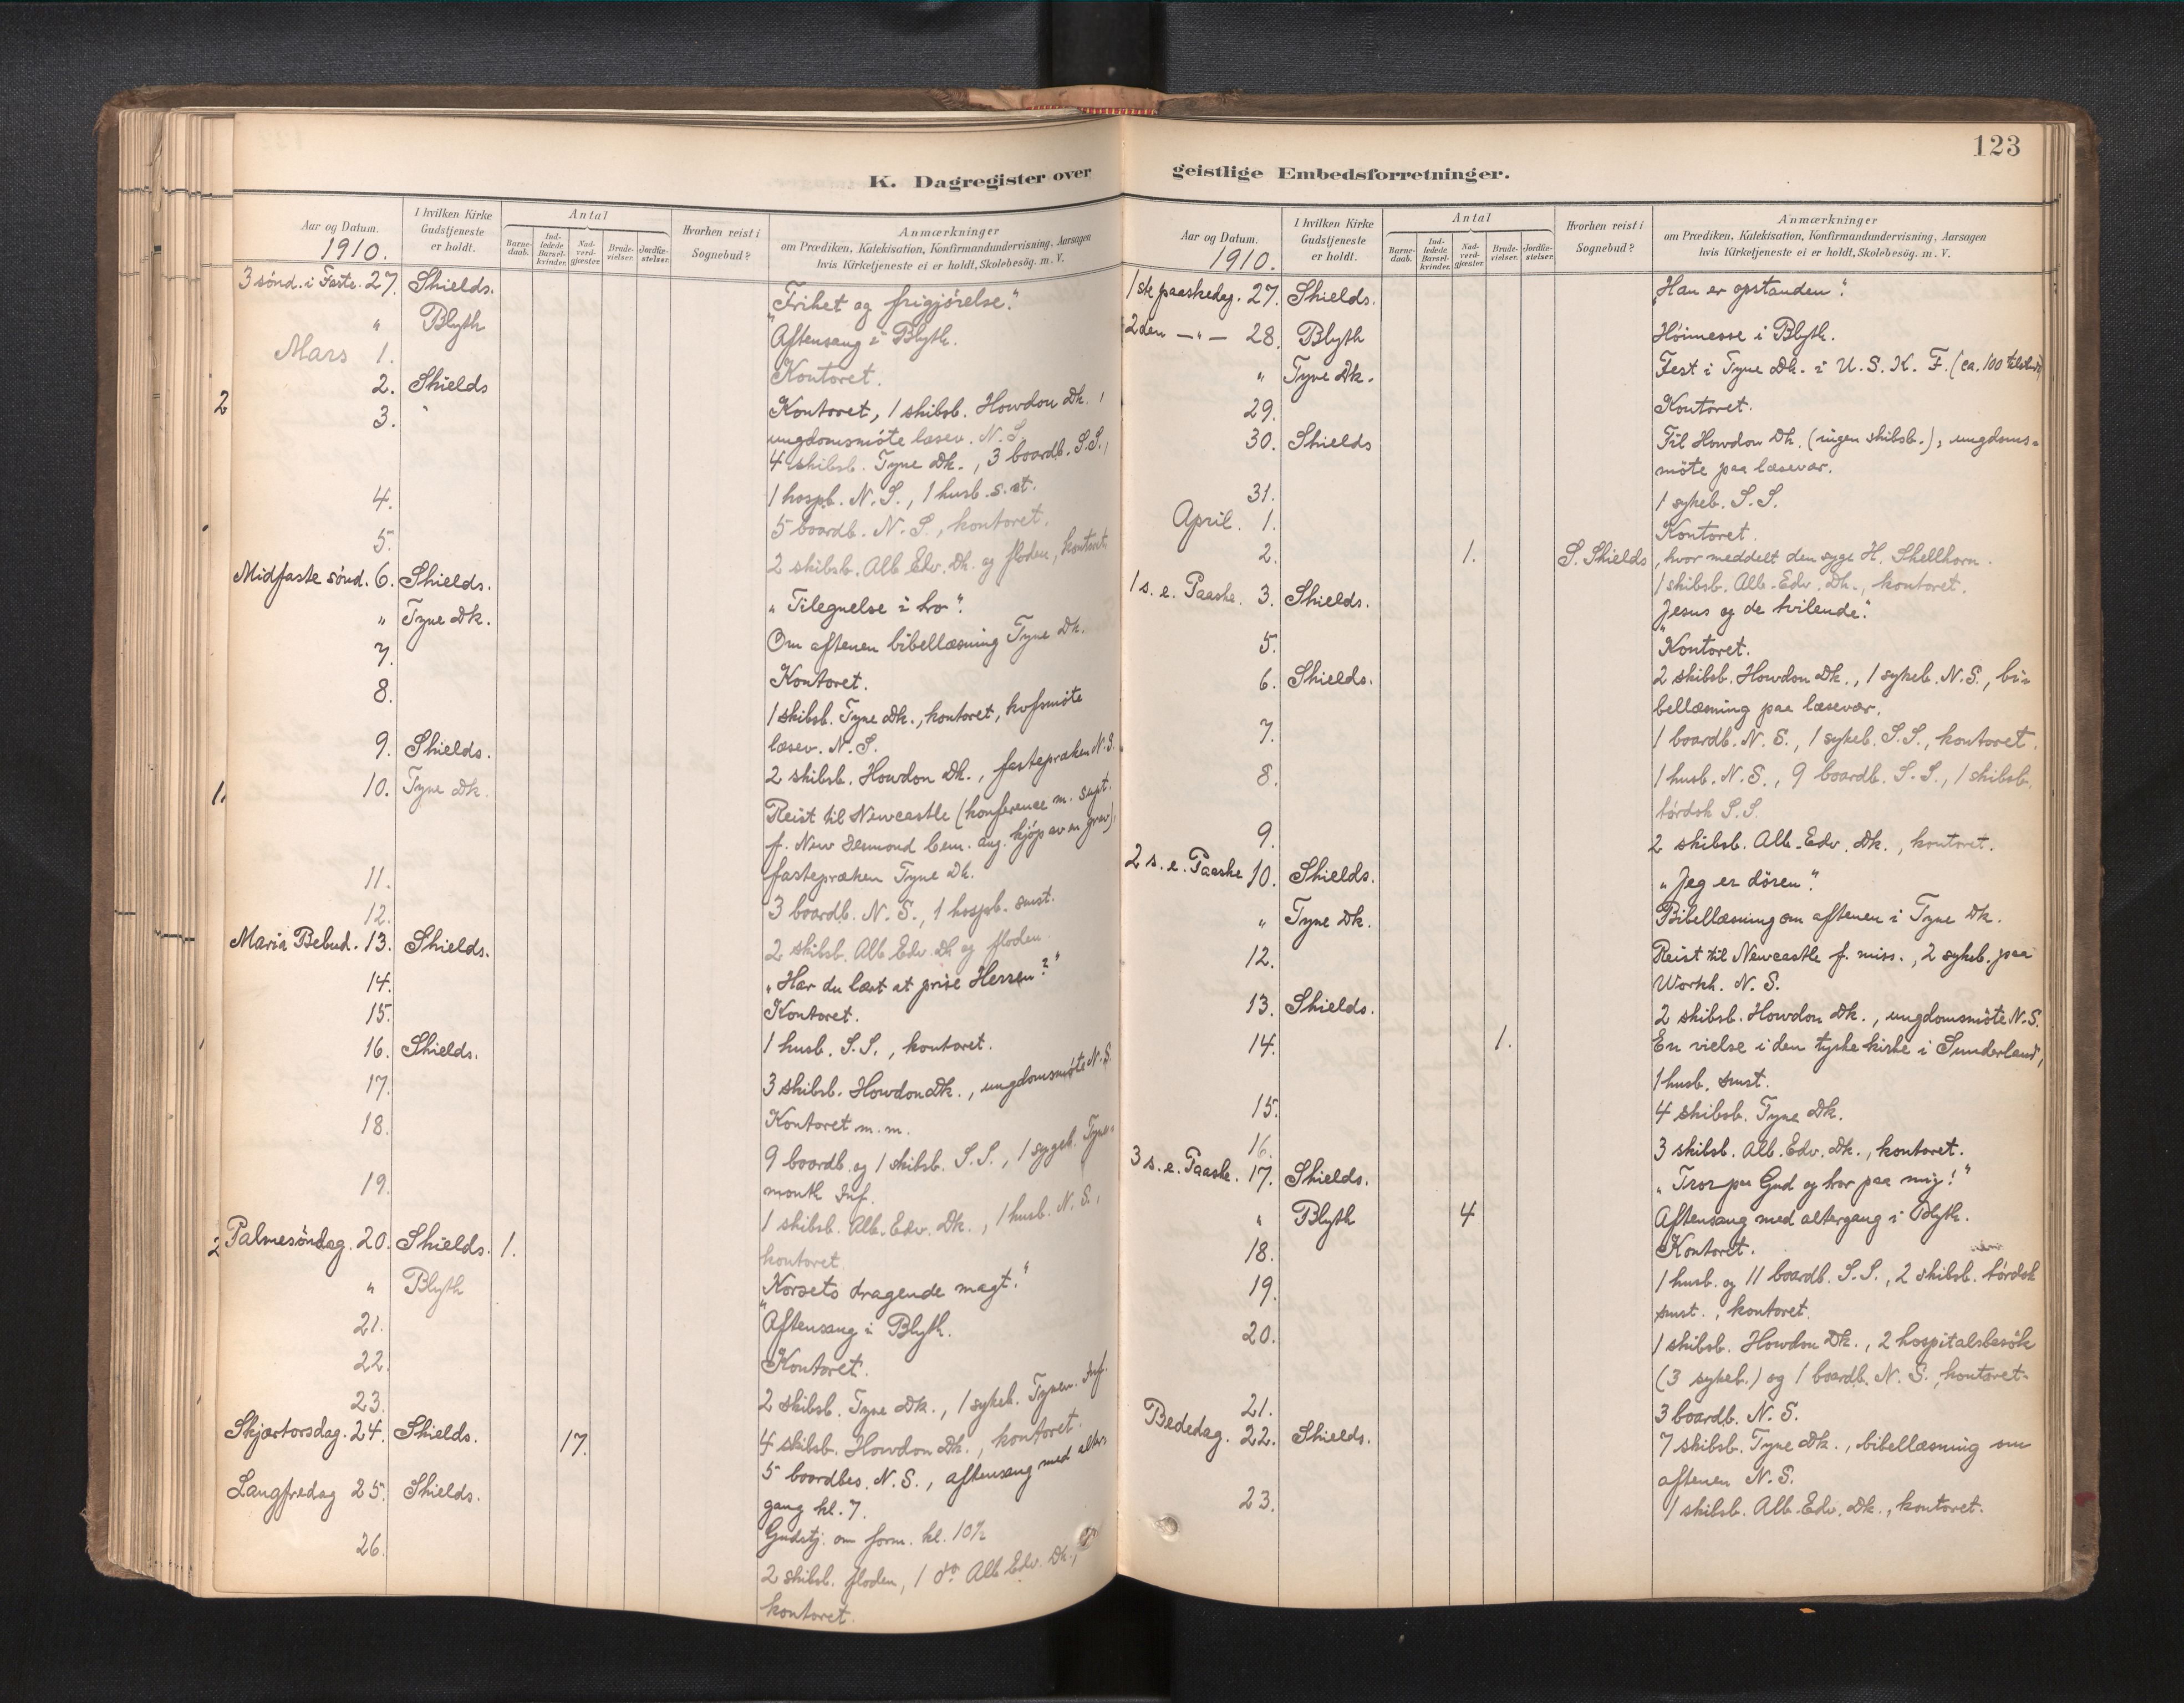 K. Dagregister over
Aar og Datum.
1910.
I hvilken Kirke Gudstjeneste er holdt.
Antal
Barnedaab.
Indledede Barselkvinder.
Nadverdgjæster.
Brudevielser.
Jordfæstelser.
Hvorhen reist i Sognebud?
Anmærkninger
om Prædiken, Katekisation, Konfirmandundervisning, Aarsagen
hvis Kirketjeneste ei er holdt, Skolebesøg. m. V.
3 sønd. i Faste. 27. Shields. "Frihet og frigjørelse."
" Blyth Aftensang i Blyth.
Mars 1. Kontoret.
2
2. Shields Kontoret, 1 skibsb. Howdon Dk.,
ungdomsmøte læsev. N.S.
3. " 4 skibsb. Tyne Dk., 3 boardb. S.S.,
1 hospb. N.S., 1 husb. s. st.
4. 5 boardb. N.S., kontoret.
5. 2 skibsb. Alb. Edw. Dk. og floden, kontoret.
Midfaste sønd. 6. Shields. "Tilegnelse i tro".
" Tyne Dk. Om aftenen bibellæsning Tyne Dk.
7. Kontoret.
8. 1 skibsb. Tyne Dk., kontoret,
læsev. N.S.
9. Shields. 2 skibsb. Howdon Dk., fastepræken N.S.
1.
10. Tyne Dk. Reist til Newcastle (konference m. supt.
f. New Cem. ang. kjøp av en grav),
fastepræken Tyne Dk.
11. 3 boardb. N.S., 1 hospb. smst.
12. 2 skibsb. Alb. Edw. Dk og floden.
Maria Bebud. 13. Shields. "Har du lært at prise Herren?"
14. Kontoret.
15. 1 husb. S.S., kontoret.
16. Shields. 3 skibsb. Howdon Dk., ungdomsmøte N.S.
17. Kontoret m.m.
18. 9 boardb. og 1 skibsb. S.S., 1 sygeb. Tyne-
mouth Inf.
19. 1 skibsb. Alb. Edw. Dk., 1 husb. N.S.,
kontoret.
2
Palmesøndag. 20. Shields. 1. "Korsets dragende magt."
" Blyth Aftensang i Blyth.
21. Kontoret.
22. 2 skibsb. Tyne Dk., 1 sykeb. Tynem. Inf.
23. 4 skibsb. Howdon Dk., kontoret.
Skjærtorsdag. 24. Shields. 17. 5 boardbes. N.S., aftensang med alter
gang kl. 7.
Langfredag 25. Shields. Gudstj. om form. kl. 10½
26. 2 skibsb. floden, 1 do Alb Edw. Dk.,
kontoret.
123
geistlige Embedsforretninger.
Aar og Datum.
1910.
I hvilken Kirke Gudstjeneste er holdt.
Antal
Barnedaab.
Indledede Barselkvinder.
Nadverdgjæster.
Brudevielser.
Jordfæstelser.
Hvorhen reist i Sognebud?
Anmærkninger
om Prædiken, Katekisation, Konfirmandundervisning, Aarsagen
hvis Kirketjeneste ei er holdt, Skolebesøg. m. V.
1ste paaskedag. 27. Shields. "Han er opstanden".
2den — " — 28. Blyth Høimesse i Blyth.
" Tyne Dk. Fest i Tyne Dk. i U.S.K.F. (ca. 100 tilstede)
29. Kontoret.
30. Shields Til Howdon Dk. (ingen skibsb.), ungdoms-
møte paa læsevær.
31. 1 sykeb. S.S.
April. 1. Kontoret.
2. 1. S. Shields, hvor meddelt den syge H. Shellhorn.
1 skibsb. Alb. Edw. Dk., kontoret.
1 s. e. Paaske. 3. Shields. "Jesus og de tvilende."
5. Kontoret.
6. Shields. 2 skibsb. Howdon Dk., 1 sykeb. N.S., bi-
bellæsning paa læsevær.
7. 1 boardb. N.S., 1 sykeb. S.S., kontoret.
8. 1 husb. N.S., 9 boardb. S.S., 1 skibsb.
tørdok S.S.
9. 2 skibsb. Alb. Edw. Dk., kontoret.
2 s. e. Paaske 10. Shields. "Jeg er døren".
" Tyne Dk. Bibellæsning om aftenen i Tyne Dk.
12. Reist til Newcastle f. miss., 2 sykeb. paa
Workh. N.S.
13. Shields. 2 skibsb. Howdon Dk., ungdomsmøte N.S.
14. 1. En vielse i den tyske kirke i Sunderland,
1 husb. smst.
15. 4 skibsb. Tyne Dk.
16. 3 skibsb. Alb. Edw. Dk., kontoret.
3 s. e. Paaske. 17. Shields. "Tror paa Gud og tror paa mig!"
" Blyth 4 Aftensang med altergang i Blyth.
18. Kontoret.
19. 1 husb. og 11 boardb. S.S., 2 skibsb. tørdok
smst., kontoret.
20. 1 skibsb. Howdon Dk., 2 hospitalsbesøk
(3 sykeb.) og 1 boardb. N.S. kontoret.
21. 3 boardb. N.S.
Bededag. 22. Shields. 7 skibsb. Tyne Dk., bibellæsning om
aftenen N.S.
23. 1 skibsb. Alb. Edw. Dk., kontoret.